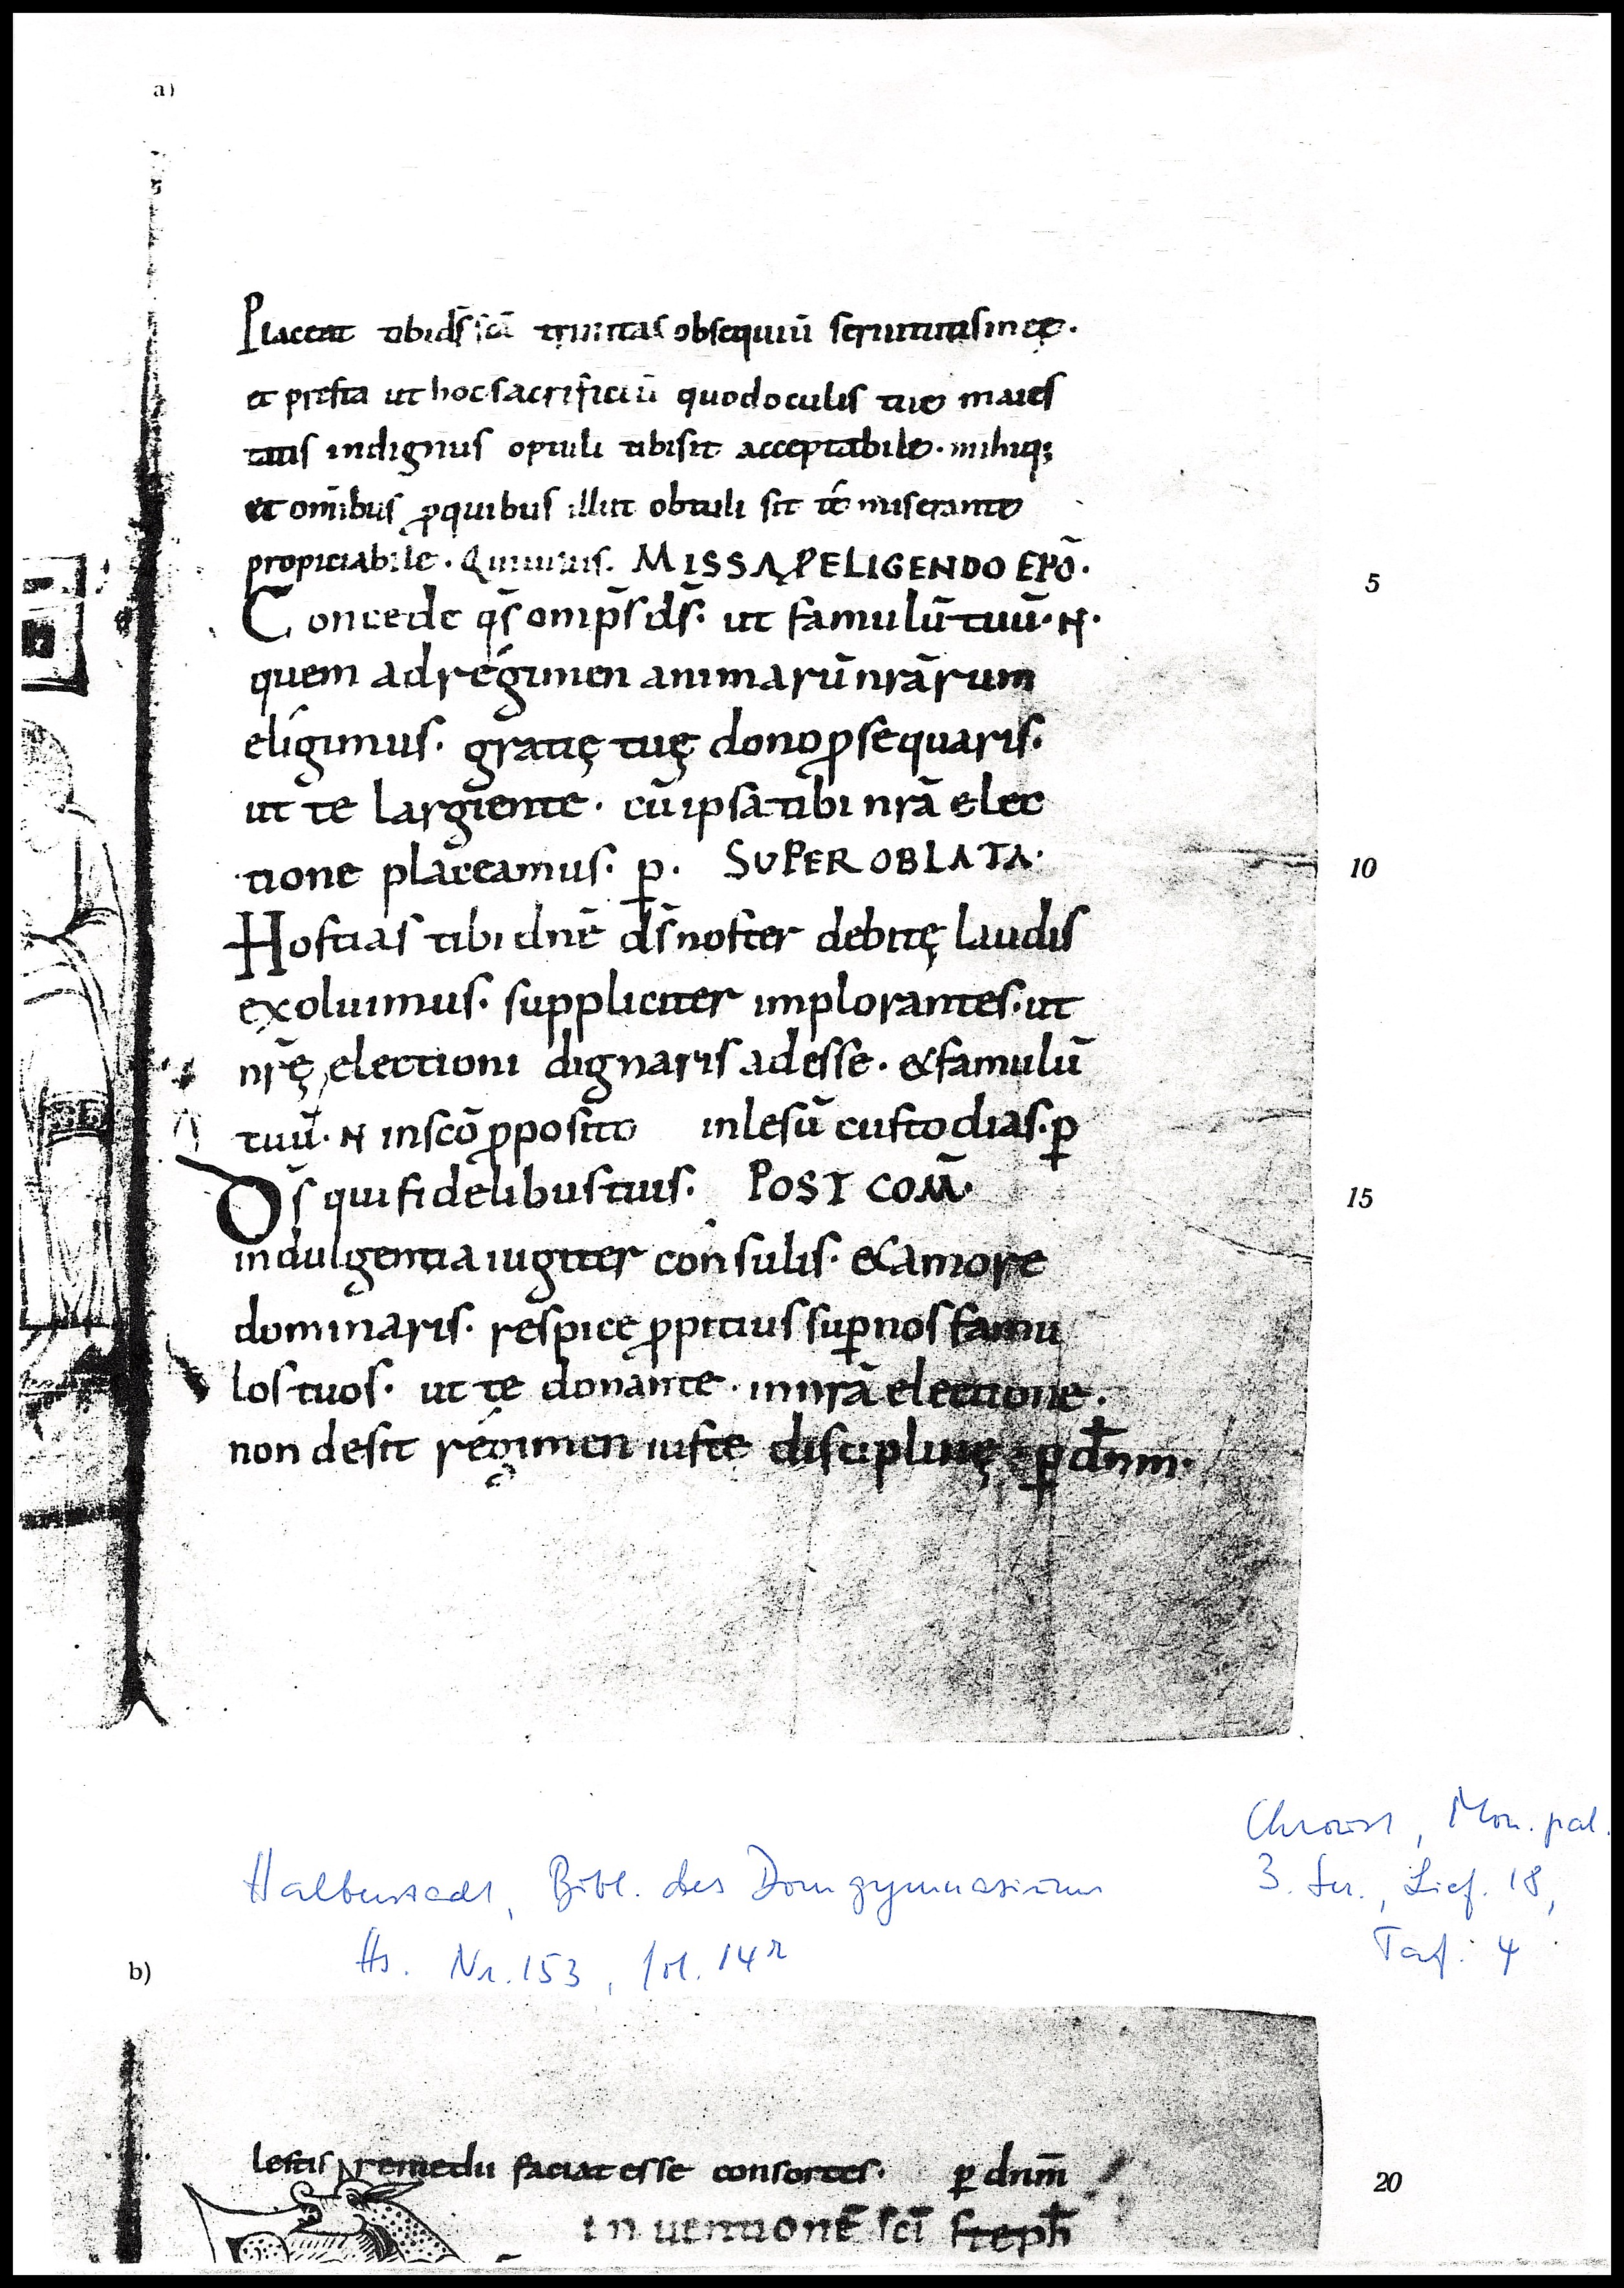 a)
Placeat tibi ds̄ scā trinitas obsequiū seruitutis meę·
et pręsta ut hoc sacrificiū quod oculis tuę maies
tatis indignus optuli tibi sit acceptabile· mihiq;
et om̄ibus ꝓ quibus illut obtuli sit té miserante
propiciabile· Qui uiuis. MISSA P ELIGENDO EPŌ·
Concede qs̄ omp̄s ds̄· ut famulū tuū· N·
quem ad régimen animarū nrārum
eligimus· gratię tuę dono ꝓsequaris·
ut te largiente· cū ipsa tibi nrā elec
tione placeamus· ꝑ· SUPER OBLATA·
Hostias tibi dnē ds̄ noster debitę laudis
exoluimus· suppliciter implorantes· ut
nrę̄ electioni dignaris adesse· & famulū
tuū· N in scō ꝓposito inlesū custodias· ꝑ
Ds̄ qui fidelibus tuis· POST COM̄·
indulgentia iugiter consulis· & amore
dominaris· respice ꝓpitius suꝑ nos famu
los tuos· ut te donante· in nrā electione·
non desit régimen iuste disciplinę· ꝑ dn̄m·
5
10
15
Halberstadt, Bibl. des Domgymnasiums
Hs. Nr. 153, fol. 14r
Chroust, Mon. pal.
3. Ser., Lief. 18,
Taf. 4
b)
lestis remedii faciat esse consortes· ꝑ dnm̄
inuentionē scī steph̄
20